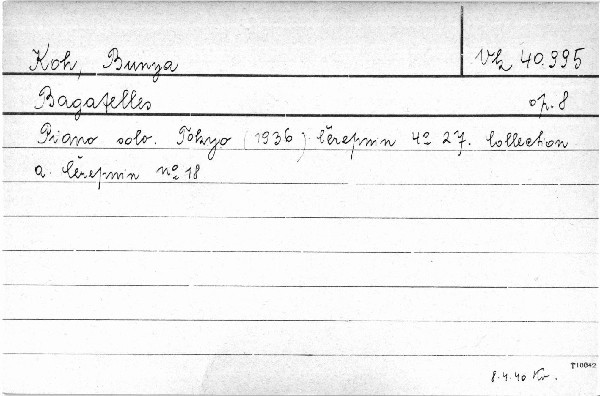 Koh, Bunya Vh 40.995
Bagatelles op. 8
Piano solo. Tōkyo (1936) Čerepnin 4º 27. Collection
a. Čerepnin nº 18
8.4.40 Kr.
T10042